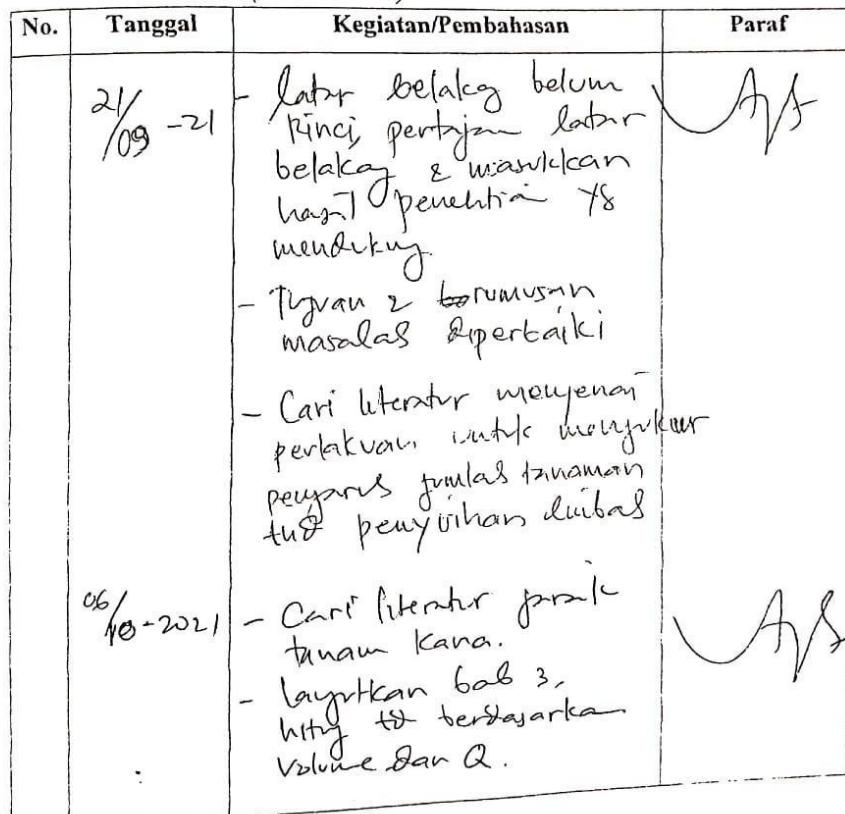 No. Tanggal Kegiatan/Pembahasan Paraf
21/09 -21
- latar belakag belum
rinci, pertajam latar
belakag & masukkan
hasil penelitian yg
mendukung.
- Tujuan & rumusan
masalah diperbaiki
- Cari literatur mengenai
perlakuan untuk mengukur
pengaruh jumlah tanaman
thd penyisihan limbah
06/10-2021
- Cari literatur jarak
tanam kana.
- lanjutkan bab 3,
hitung td berdasarkan
volume dan Q.